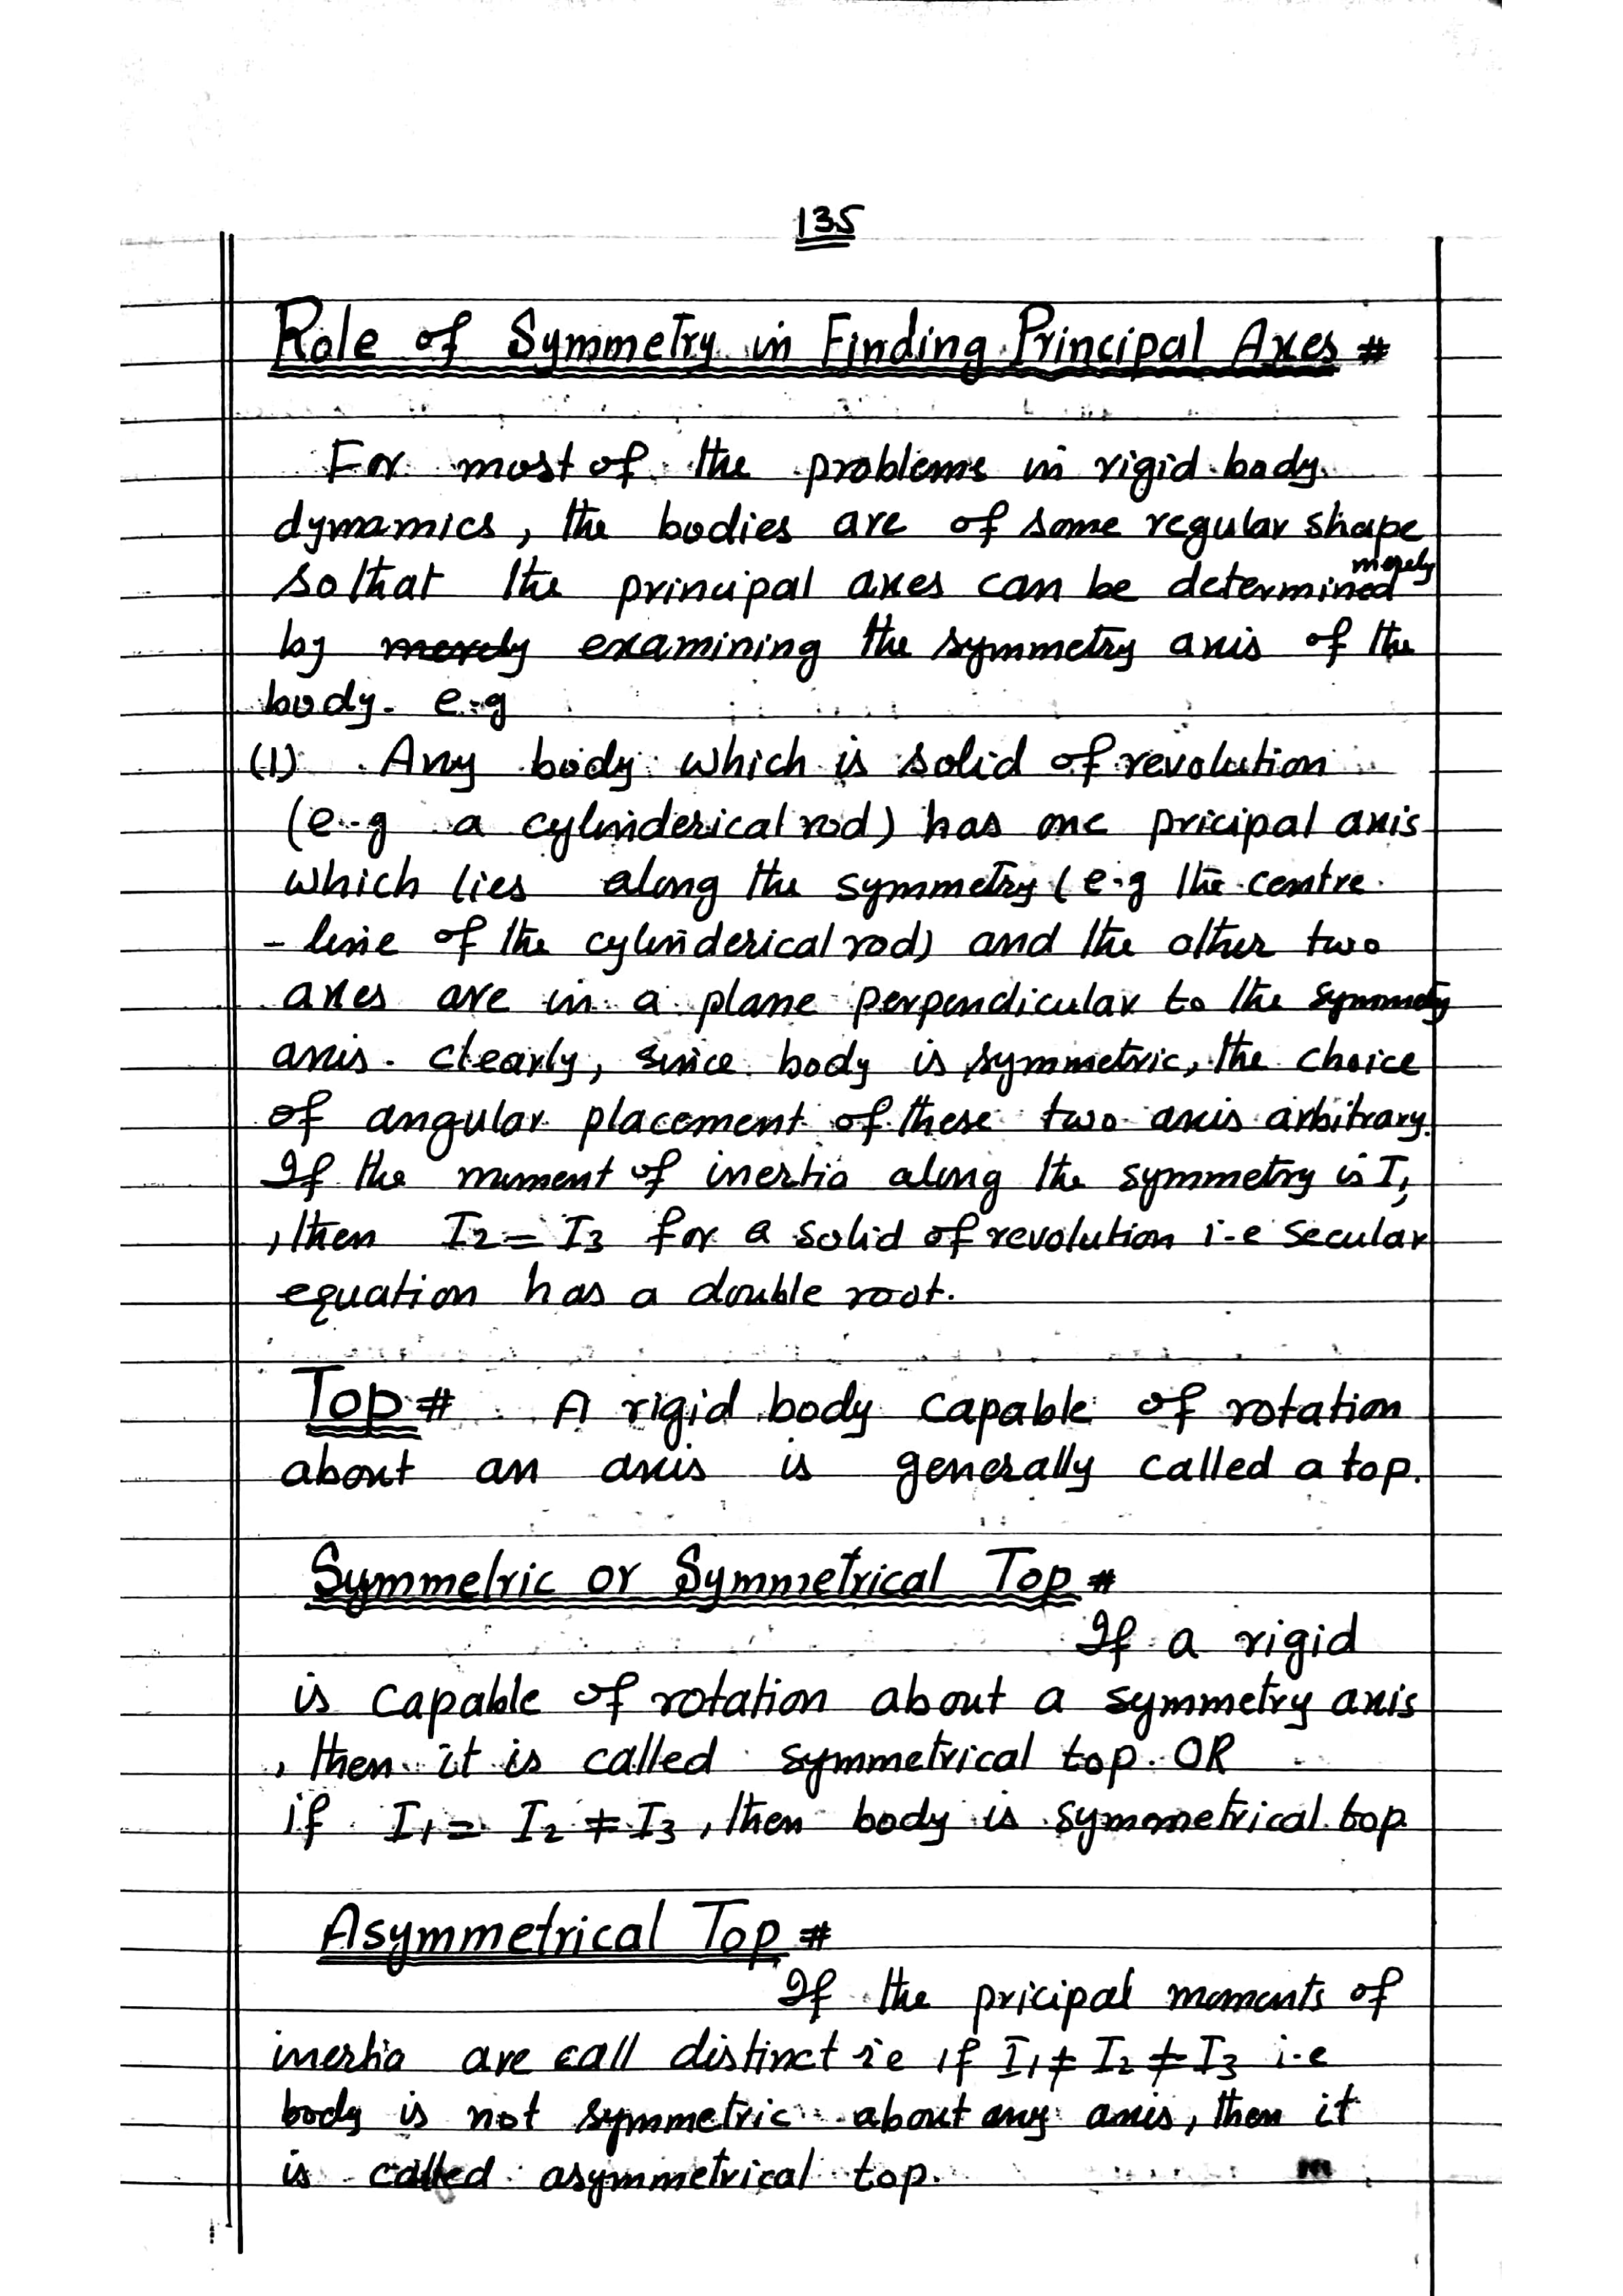 135
Role of Symmetry in Finding Principal Axes #
For most of the problems in rigid body
dymamics, the bodies are of some regular shape
so that the principal axes can be determined merely
by merely examining the symmetry axis of the
body. e.g
(1) Any body which is solid of revolution
(e.g a cylinderical rod) has one pricipal axis
which lies along the symmetry (e.g the centre
- line of the cylinderical rod) and the other two
axes are in a plane perpendicular to the symmety
axis. clearly, since body is symmetric, the choice
of angular placement of these two axis arbitrary.
If the mument of inertia along the symmetry is I₁
, then I₂ = I₃ for a solid of revolution i-e secular
equation has a double root.
Top # A rigid body capable of rotation
about an axis is generally called a top.
Symmetric or Symmetrical Top #
If a rigid
is capable of rotation about a symmetry axis
, then it is called symmetrical top. OR
if I₁ = I₂ ≠ I₃, then body is symmetrical top
Asymmetrical Top #
If the pricipal moments of
inertia are call distinct ie if I₁ ≠ I₂ ≠ I₃ i-e
body is not symmetric about any axis, then it
is called asymmetrical top.